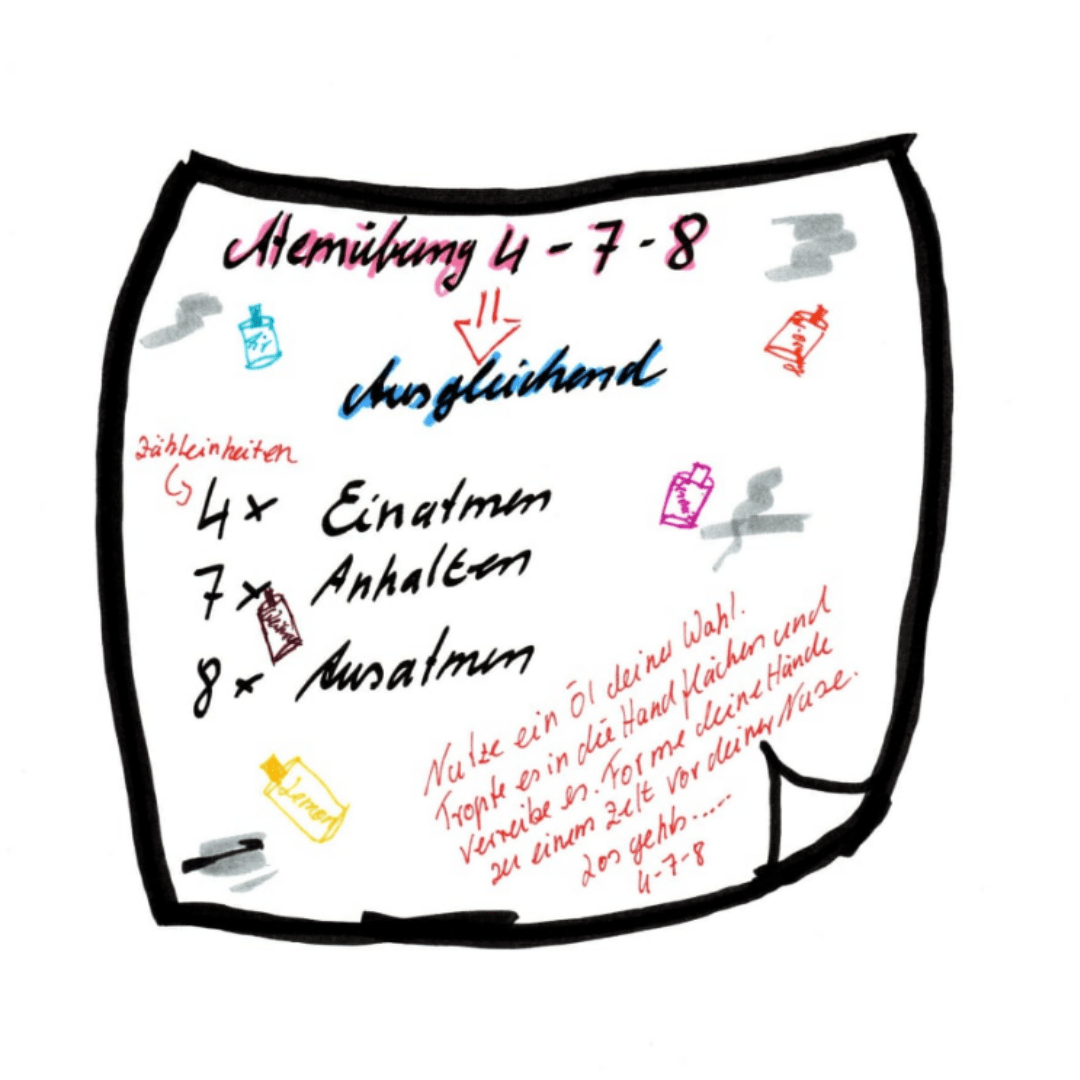 Atemübung 4-7-8
Ausgleichend
Zähleinheiten
4x Einatmen
7x Anhalten
8x Ausatmen
Lemon
Nutze ein Öl deiner Wahl.
Tropfe es in die Handflächen und
verreibe es. Forme deine Hände
zu einem Zelt vor deiner Nase.
Los gehts.....
4-7-8